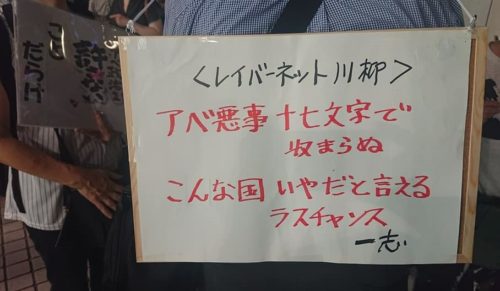 ＜レイバーネット川柳＞
アベ悪事 十七文字で
収まらぬ
こんな国 いやだと言える
ラスチャンス
一志
だらけ